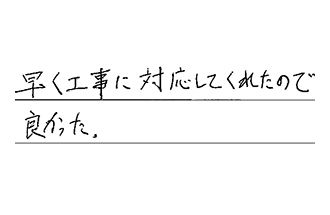 早く工事に対応してくれたので
良かった。